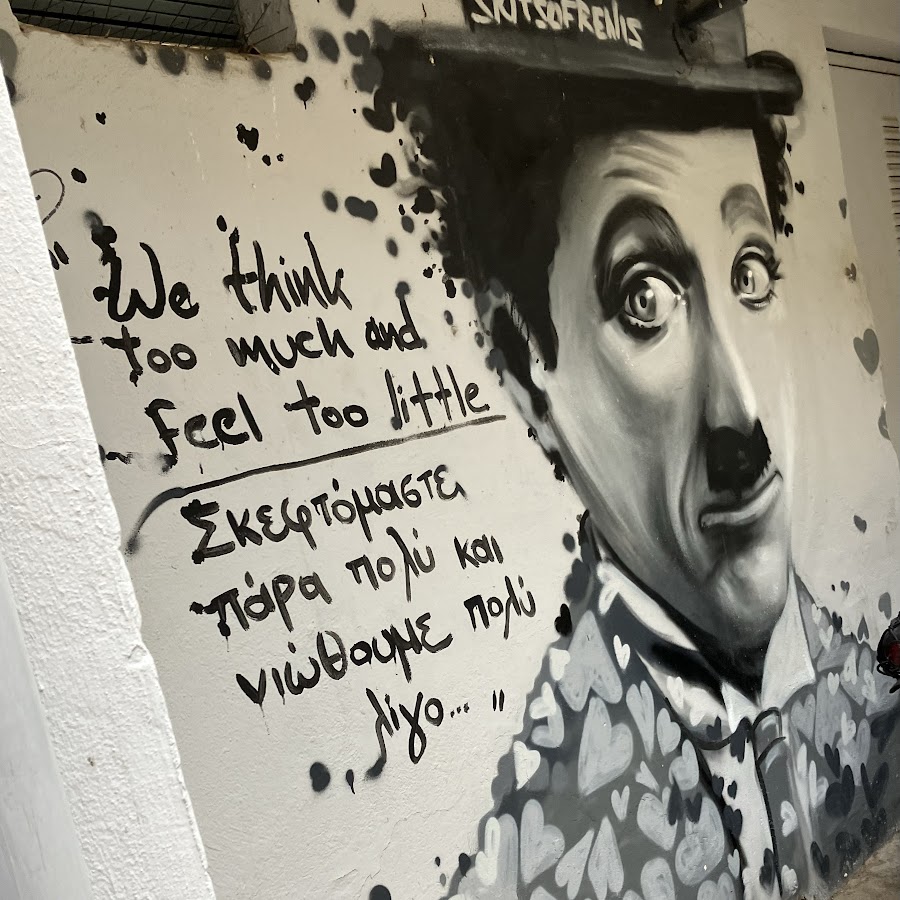 SKITSOFRENIS
We think
too much and
feel too little
Σκεφτόμαστε
πάρα πολύ και
νιώθουμε πολύ
λίγο... "